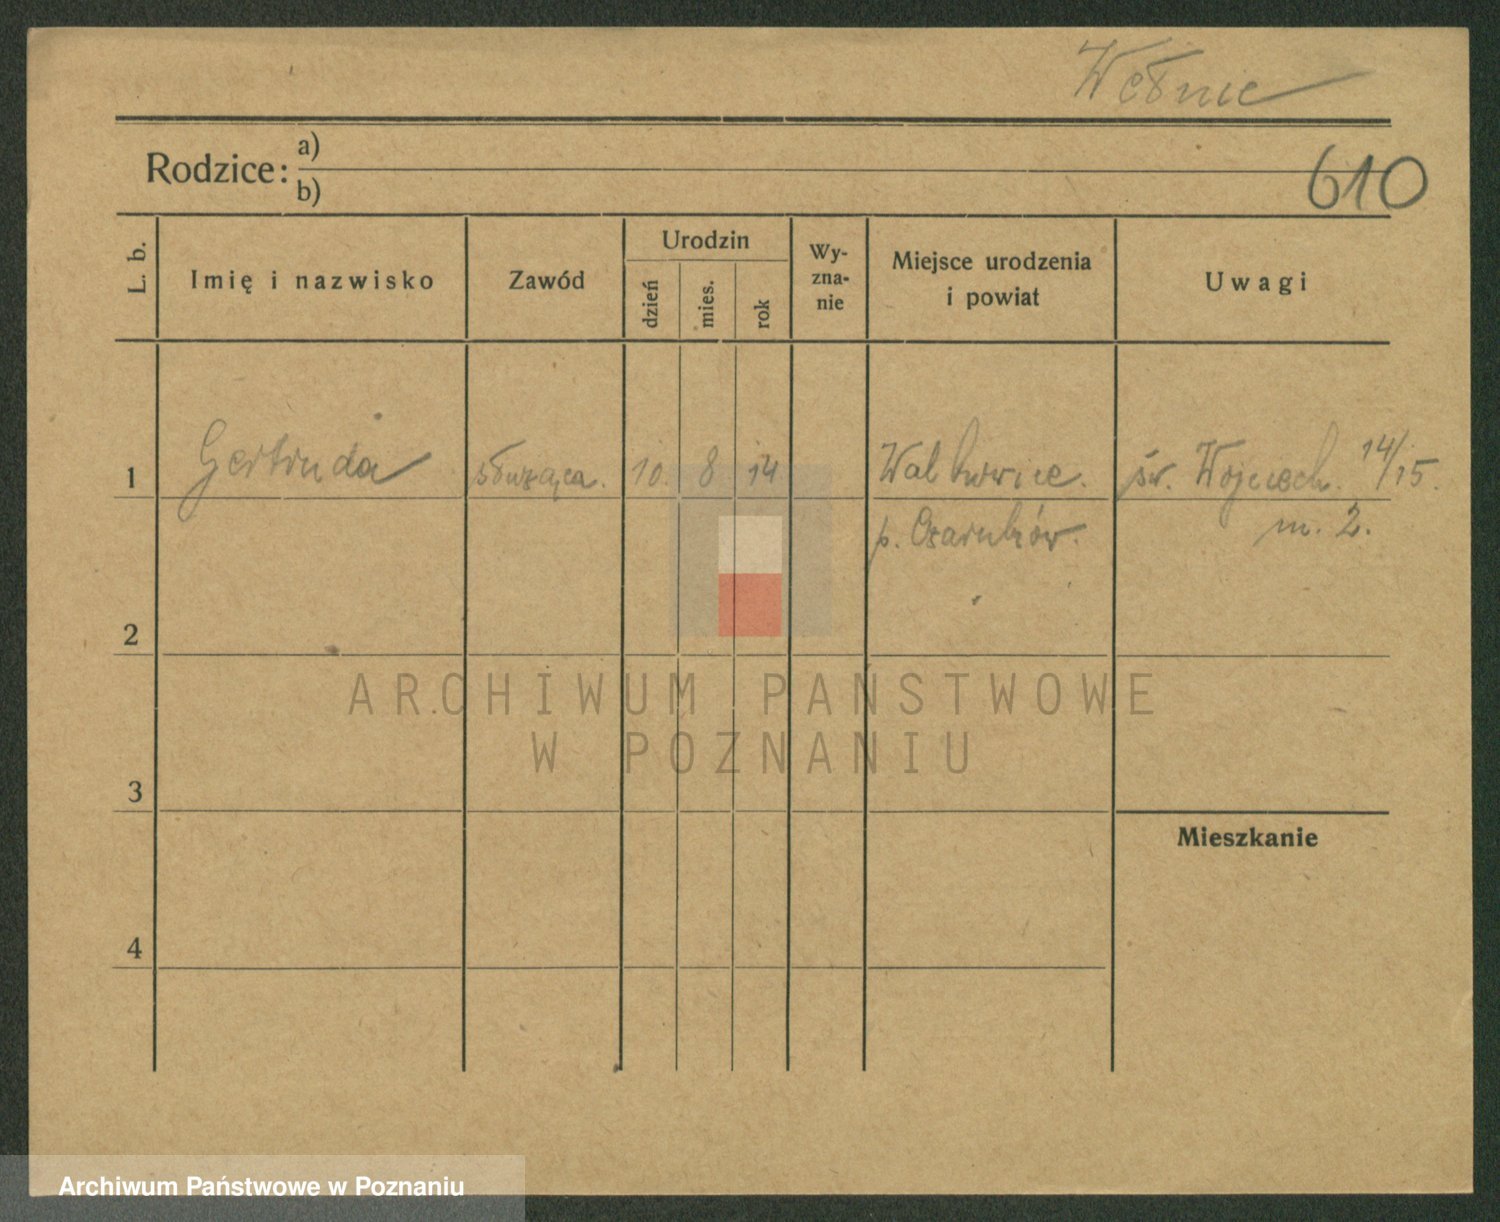 Wełnic
Rodzice: a)
b)
610
L. b.
Imię i nazwisko
Zawód
Urodzin
dzień
mies.
rok
Wy-
zna-
nie
Miejsce urodzenia
i powiat
Uwagi
1 Gertruda służąca. 10. 8 14 św. Wojciech. 14/15.
p. Czarnków. m. 2.
2
ARCHIWUM PAŃSTWOWE
W POZNANIU
3
Mieszkanie
4
Archiwum Państwowe w Poznaniu